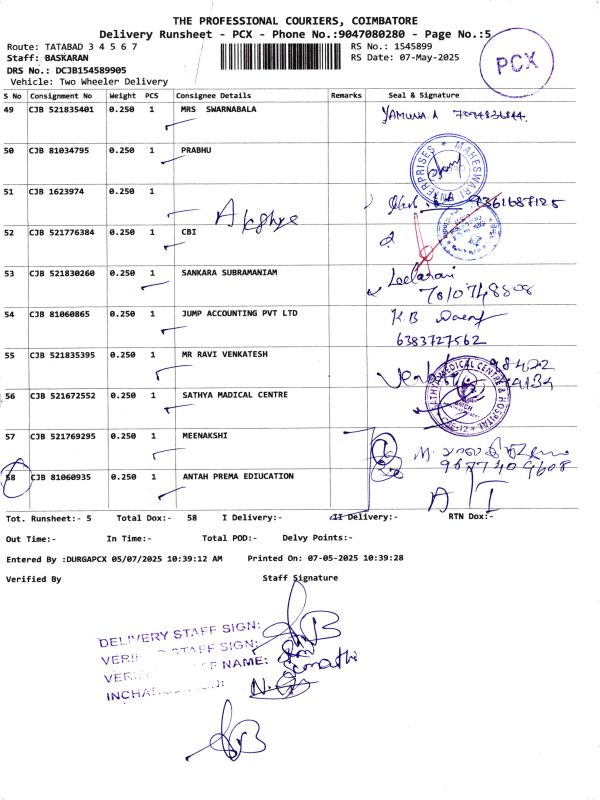 THE PROFESSIONAL COURIERS, COIMBATORE
Delivery Runsheet - PCX - Phone No.:9047080280 - Page No.:5
Route: TATABAD 3 4 5 6 7 RS No.: 1545899
Staff: BASKARAN RS Date: 07-May-2025
PCX
DRS No.: DCJB154589905
Vehicle: Two Wheeler Delivery
S No Consignment No Weight PCS Consignee Details Remarks Seal & Signature
49 CJB 521835401 0.250 1 MRS SWARNABALA YAMUNA.A
50 CJB 81034795 0.250 1 PRABHU
MAHESWARI ENTERPRISES
51 CJB 1623974 0.250 1 Akshya 9361687125
52 CJB 521776384 0.250 1 CBI
53 CJB 521830260 0.250 1 SANKARA SUBRAMANIAM Leelarani
7010748808
54 CJB 81060865 0.250 1 JUMP ACCOUNTING PVT LTD K.B
6383727562
55 CJB 521835395 0.250 1 MR RAVI VENKATESH
56 CJB 521672552 0.250 1 SATHYA MADICAL CENTRE
SATHYA MEDICAL CENTRE & HOSPITAL
57 CJB 521769295 0.250 1 MEENAKSHI M.
9677409608
58 CJB 81060935 0.250 1 ANTAH PREMA EDIUCATION
Tot. Runsheet:- 5 Total Dox:- 58 I Delivery:- II Delivery:- RTN Dox:-
Out Time:- In Time:- Total POD:- Delvy Points:-
Entered By :DURGAPCX 05/07/2025 10:39:12 AM Printed On: 07-05-2025 10:39:28
Verified By Staff Signature
DELIVERY STAFF SIGN:
STAFF SIGN:
NAME: